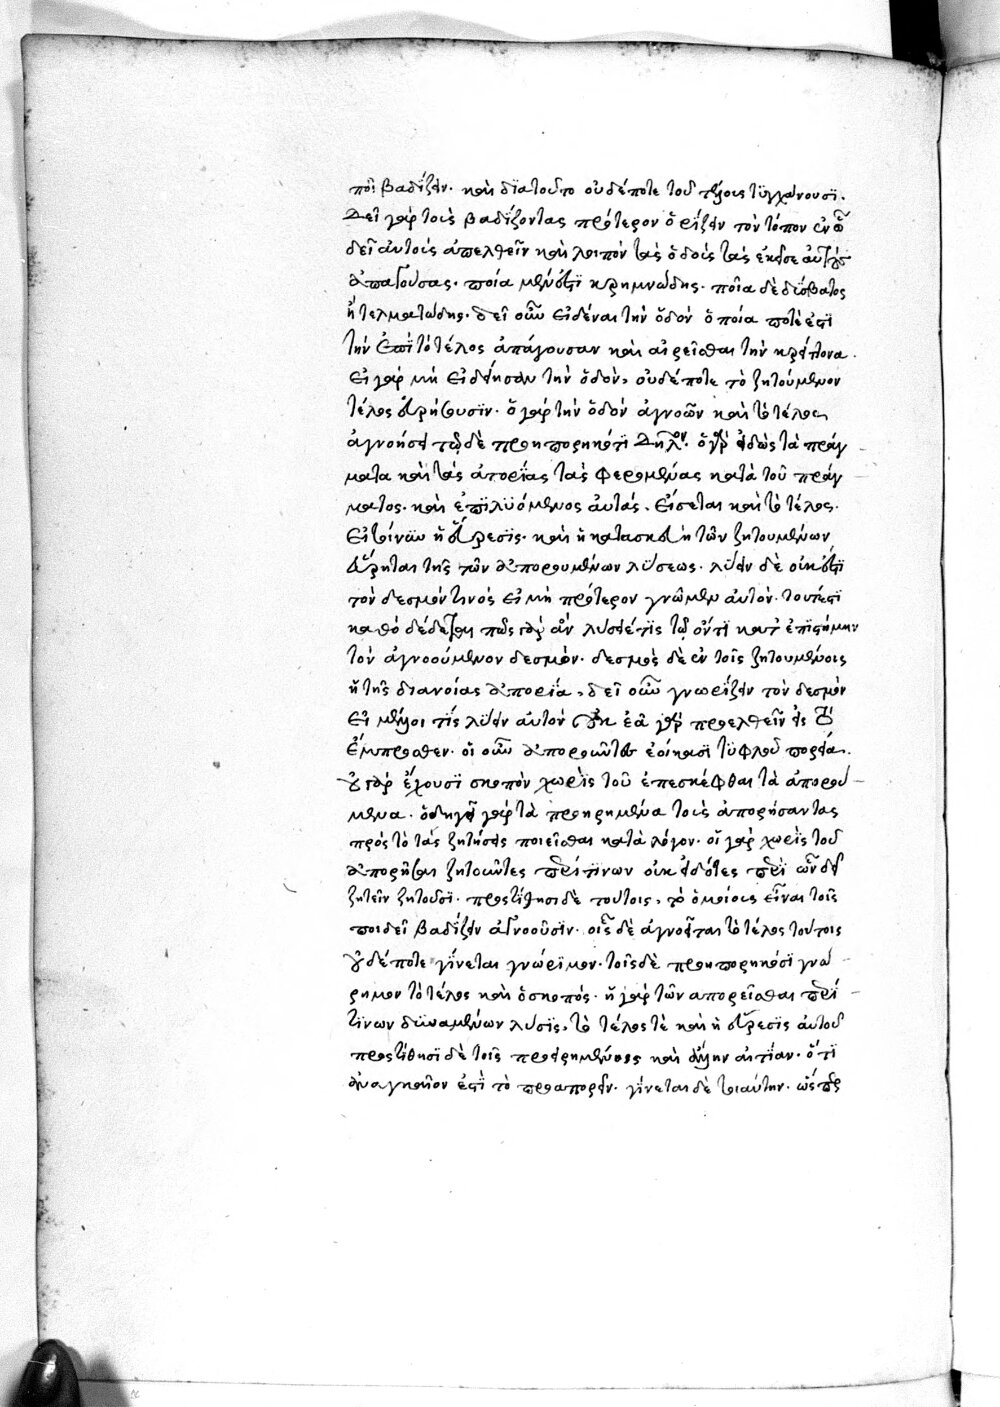 ποῖ βαδίζειν. καὶ διατοῦτο οὐδέποτε τοῦ τέλους τυγχάνουσι.
Δεῖ γὰρ τοὺς βαδίζοντας πρότερον ὁρίζειν τὸν τόπον ἐν ᾧ
δεῖ αὐτοὺς ἀπελθεῖν καὶ λοιπὸν τὰς ὁδοὺς τὰς ἐκεῖσε αὐτοὺς
ἀπαγούσας. ποία μέν ἐστι κρημνώδης. ποῖα δὲ δύσβατος
ἢ τελματώδης. δεῖ οὖν εἰδέναι τὴν ὁδὸν ὁποία ποτὲ ἐστὶ
τὴν ἐπὶ τὸ τέλος ἀπάγουσαν καὶ αἱρεῖσθαι τὴν κρείττονα.
εἰ γὰρ μὴ εἰδήσειαν τὴν ὁδὸν, οὐδέποτε τὸ ζητούμενον
τέλος εὑρήσουσιν. ὁ γὰρ τὴν ὁδὸν ἀγνοῶν καὶ τὸ τέλος
ἀγνοήσει τῷ δὲ προηπορηκότι δῆλον. ὁ γὰρ εἰδὼς τὰ πράγ
ματα καὶ τὰς ἀπορίας τὰς φερομένας κατὰ τοῦ πράγ
ματος. καὶ ἐπιλυόμενος αὐτάς. εἴσεται καὶ τὸ τέλος.
εἰ τοίνυν ἡ εὕρεσις. καὶ ἡ κατασκευὴ τῶν ζητουμένων
ἤρτηται τῆς τῶν ἀπορουμένων λύσεως. λύειν δὲ οὐκ ἔστι
τὸν δεσμόν τινος εἰ μὴ πρότερον γνῶμεν αὐτόν. τουτέστι
καθὸ δέδεται πῶς γὰρ ἂν λύσειέ τις τῷ ὄντι κατ' ἐπιστήμην
τὸν ἀγνοούμενον δεσμόν. δεσμὸς δὲ ἐν τοῖς ζητουμένοις
ἡ τῆς διανοίας ἀπορία, δεῖ οὖν γνωρίζειν τὸν δεσμὸν
εἰ μέλλοι τις λύειν αὐτὸν οὐκ ἐᾶ γὰρ προελθεῖν εἰς τὸ
ἔμπροσθεν. οἱ οὖν ἀποροῦντες ἐοίκασι τυφλοῦ πορεία.
οὐ γὰρ ἔχουσι σκοπὸν χωρὶς τοῦ ἐπεσκέφθαι τὰ ἀπορού
μενα. ὁδηγεῖ γὰρ τὰ προηρημένα τοὺς ἀπορήσαντας
πρὸς τὸ τὰς ζητήσεις ποιεῖσθαι κατὰ λόγον. οἱ γὰρ χωρὶς τοῦ
ἀπορῆσαι ζητοῦντες περὶ τίνων οὐκ εἰδότες περὶ ὧν δεῖ
ζητεῖν ζητοῦσι. προστίθησι δὲ τούτοις, τὸ ὁμοίους εἶναι τοῖς
ποι δεῖ βαδίζειν ἀγνοοῦσιν. οἷς δὲ ἀγνοεῖται τὸ τέλος τούτοις
οὐδέποτε γίνεται γνώριμον. τοῖς δὲ προηπορηκόσι γνώ
ριμον τὸ τέλος καὶ ὁ σκοπός. ἡ γὰρ τῶν ἀπορεῖσθαι περί
τινων δυναμένων λύσις, τὸ τέλος τὲ καὶ ἡ εὕρεσις αὐτοῦ
προστίθησι δὲ τοῖς προειρημένοις καὶ ἄλλην αἰτίαν. ὅτι
ἀναγκαῖον ἐστὶ τὸ προαπορεῖν. γίνεται δὲ τοιαύτην. ὥσπερ